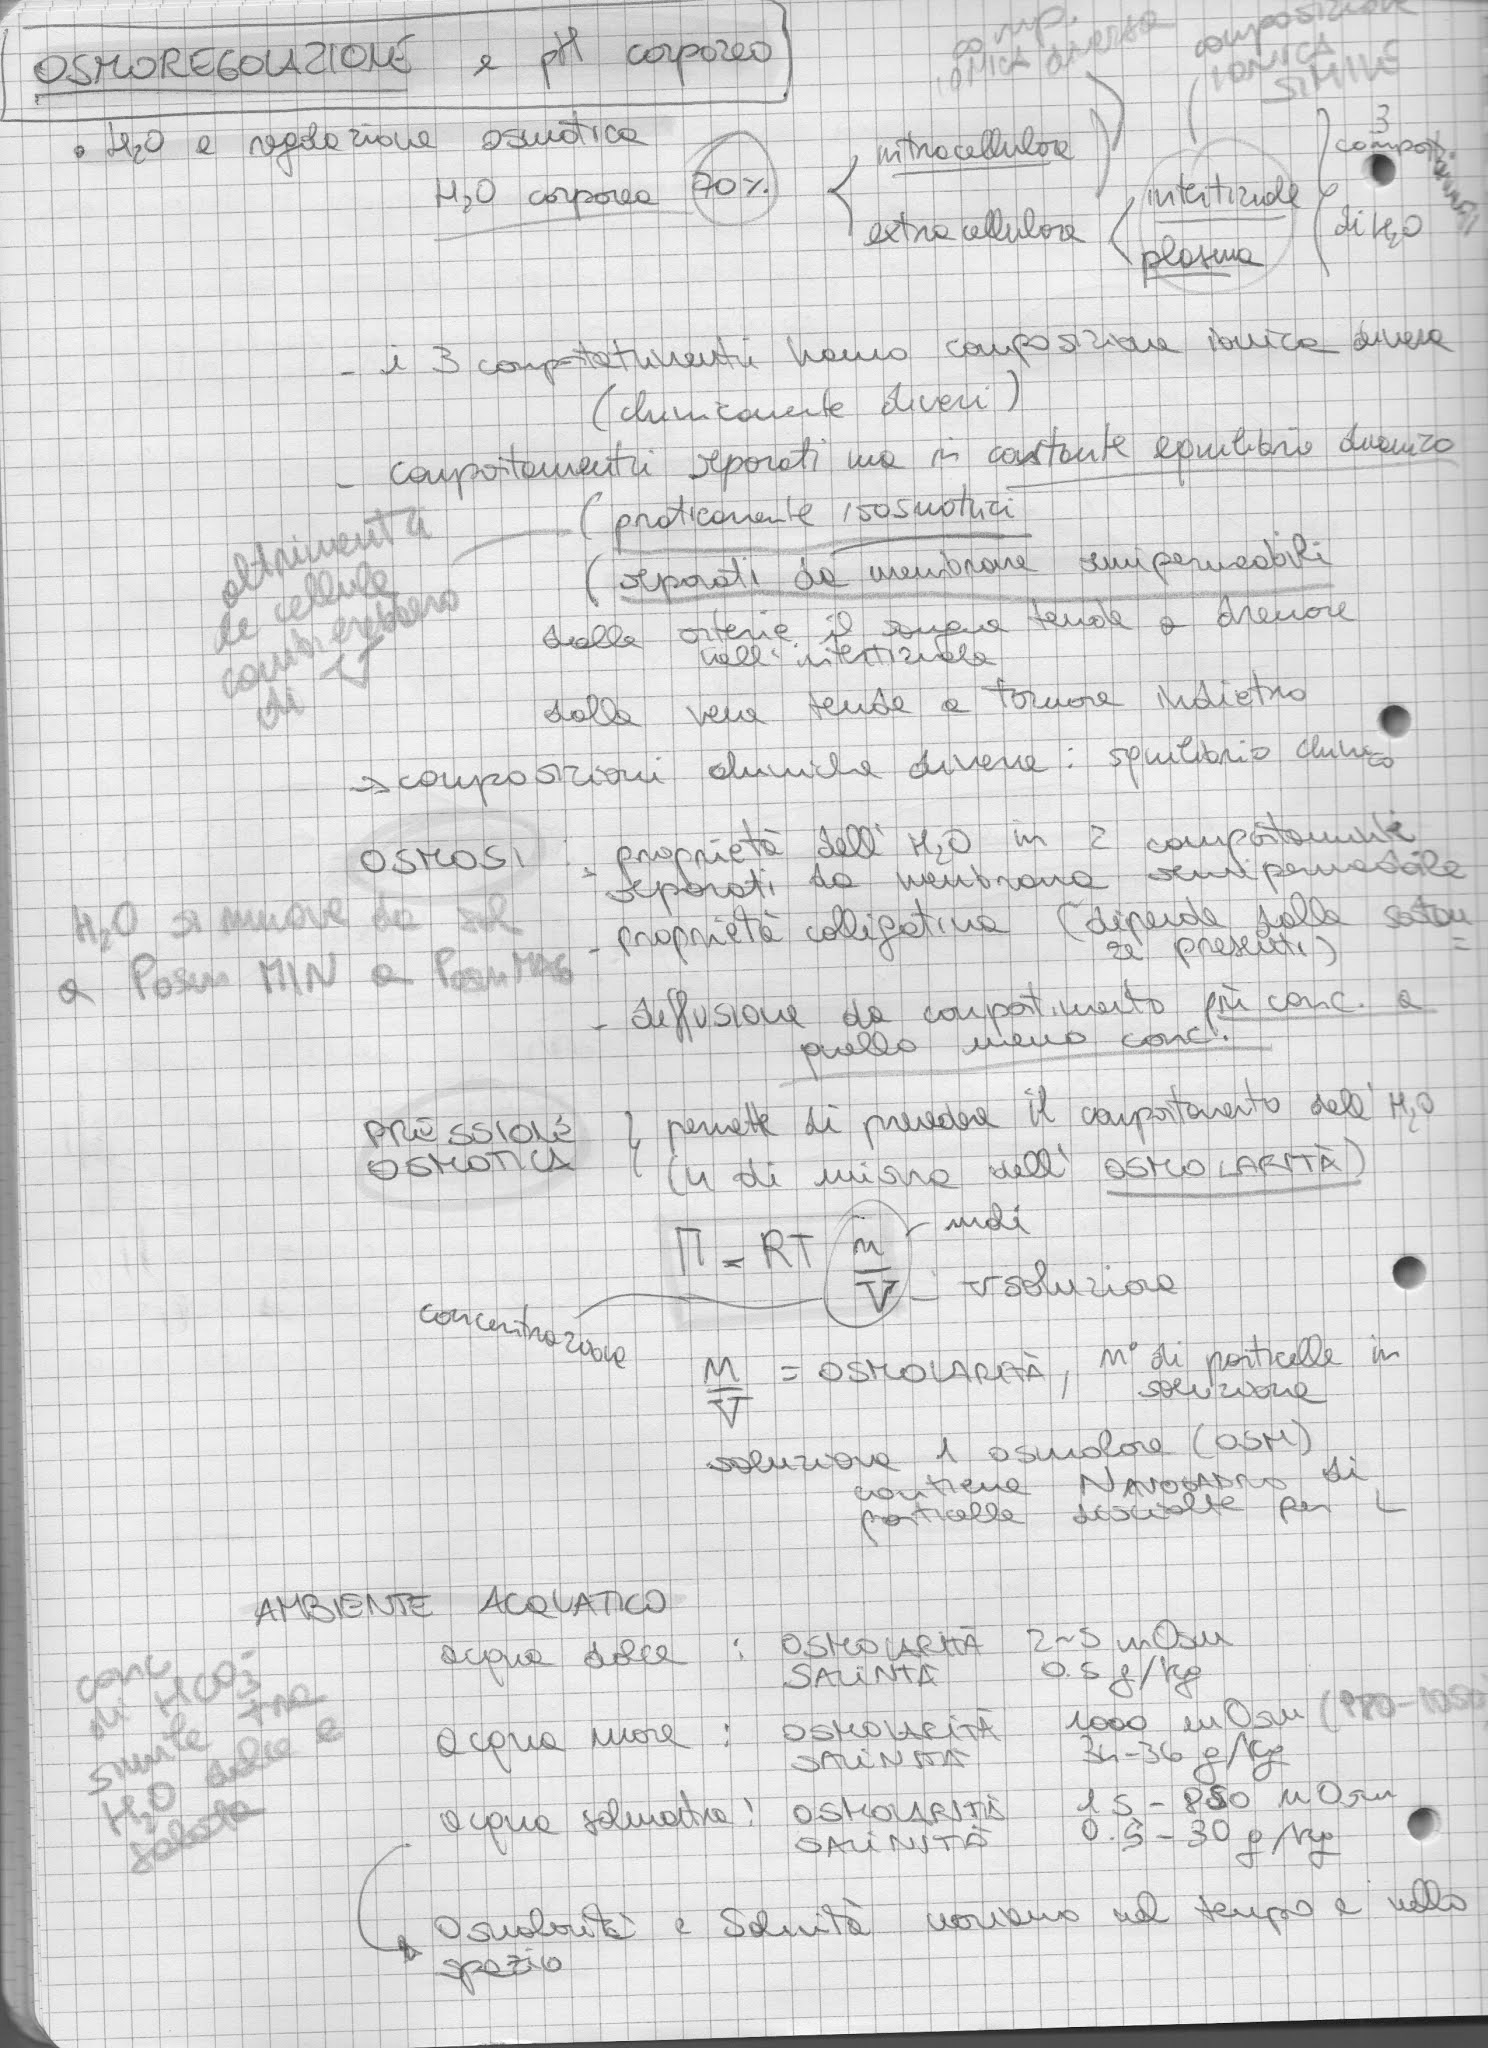 OSMOREGOLAZIONE e pH corporeo
comp. IONICA diversa
composizione IONICA SIMILE
• H2O e regolazione osmotica
H2O corporea 70%
intracellulare
extracellulare
interstiziale
plasma
3 compartimenti
di H2O
- i 3 compartimenti hanno composizione ionica diversa
(chimicamente diversi)
- compartimenti separati ma in costante equilibrio dinamico
(praticamente isosmotici
(separati da membrane semipermeabili
altrimenti
le cellule
cambierebbero
di V
dalle arterie il sangue tende a drenare
nell'interstiziale
dalla vena tende a tornare indietro
→ composizioni chimiche diverse: squilibrio chimico
OSMOSI : - proprietà dell'H2O in 2 compartimenti
separati da membrana semipermeabile
- proprietà colligativa (dipende dalle sostan=
ze presenti)
H2O si muove da sol
a Posm MIN a Posm MAG
- diffusione da compartimento più conc. a
quello meno conc.
PRESSIONE
OSMOTICA
permette di prevedere il comportamento dell'H2O
(u di misura dell'OSMOLARITÀ)
Π = RT n/V
- moli
- V soluzione
concentrazione
n/V = OSMOLARITÀ, n° di particelle in
soluzione
soluzione 1 osmolare (OSM)
contiene NAVOGADRO di
particelle disciolte per L
AMBIENTE ACQUATICO
acqua dolce : OSMOLARITÀ 2~5 mOsm
SALINITÀ 0.5 g/kg
acqua mare : OSMOLARITÀ 1000 mOsm (980-1050)
SALINITÀ 34-36 g/kg
acqua salmastra : OSMOLARITÀ 15 - 850 mOsm
SALINITÀ 0.5 - 30 g/kg
conc
di HCO3-
simile tra
H2O dolce e
salata
Osmolarità e Salinità variano nel tempo e nello
spazio